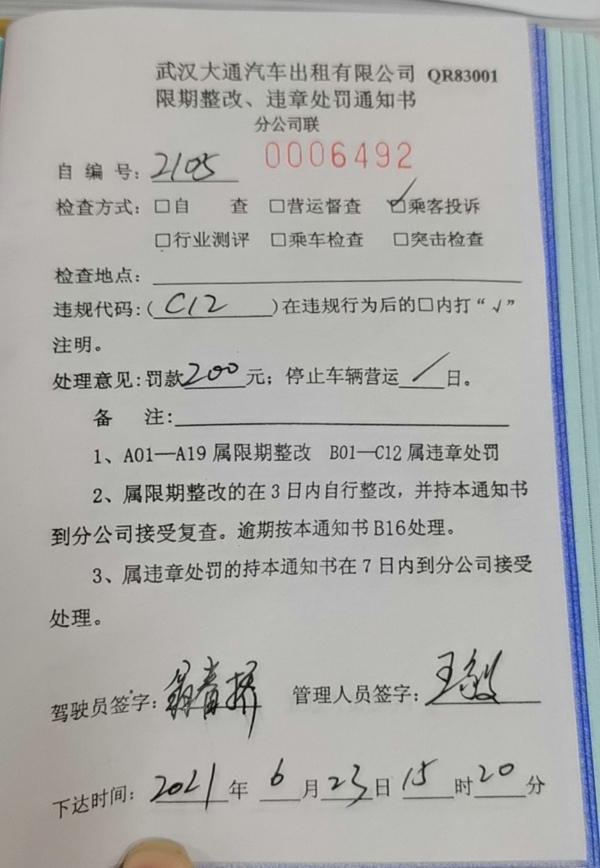 武汉大通汽车出租有限公司 QR83001
限期整改、违章处罚通知书
分公司联
自编号：2105 0006492
检查方式：□自 查 □营运督查 ☑乘客投诉
□行业测评 □乘车检查 □突击检查
检查地点：
违规代码：(C12)在违规行为后的□内打“√”
注明。
处理意见：罚款200元；停止车辆营运/日。
备 注：
1、A01—A19属限期整改 B01—C12属违章处罚
2、属限期整改的在3日内自行整改，并持本通知书
到分公司接受复查。逾期按本通知书B16处理。
3、属违章处罚的持本通知书在7日内到分公司接受
处理。
驾驶员签字： 管理人员签字：王
下达时间：2021年6月23日15时20分